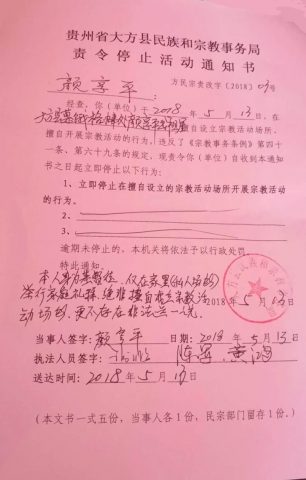 贵州省大方县民族和宗教事务局
责令停止活动通知书
方民宗责改字〔2018〕03号
颜富平:
经查,你(单位)于2018年5月13日,在
大方县 自设立宗教活动场所、
擅自开展宗教活动的行为,违反了《宗教事务条例》第四十
一条、第六十九条的规定,现责令你(单位)自收到本通知
书之日起立即停止以下行为:
1、立即停止在擅自设立的宗教活动场所开展宗教活动
的行为。
2、
3、
逾期未停止的,本机关将依法予以行政处罚
特此通知。
本人系为基督徒,仅在家里(私人场所)
举行家庭礼拜,绝非擅自设立宗教活
动场所,更不存在非法这一说。
2018年5月13日
当事人签字:颜富平 日期:2018年5月13日
执法人员签字: 陈军 黄
送达时间:2018年5月13日
(本文书一式五份,当事人各1份,民宗部门留存1份。)